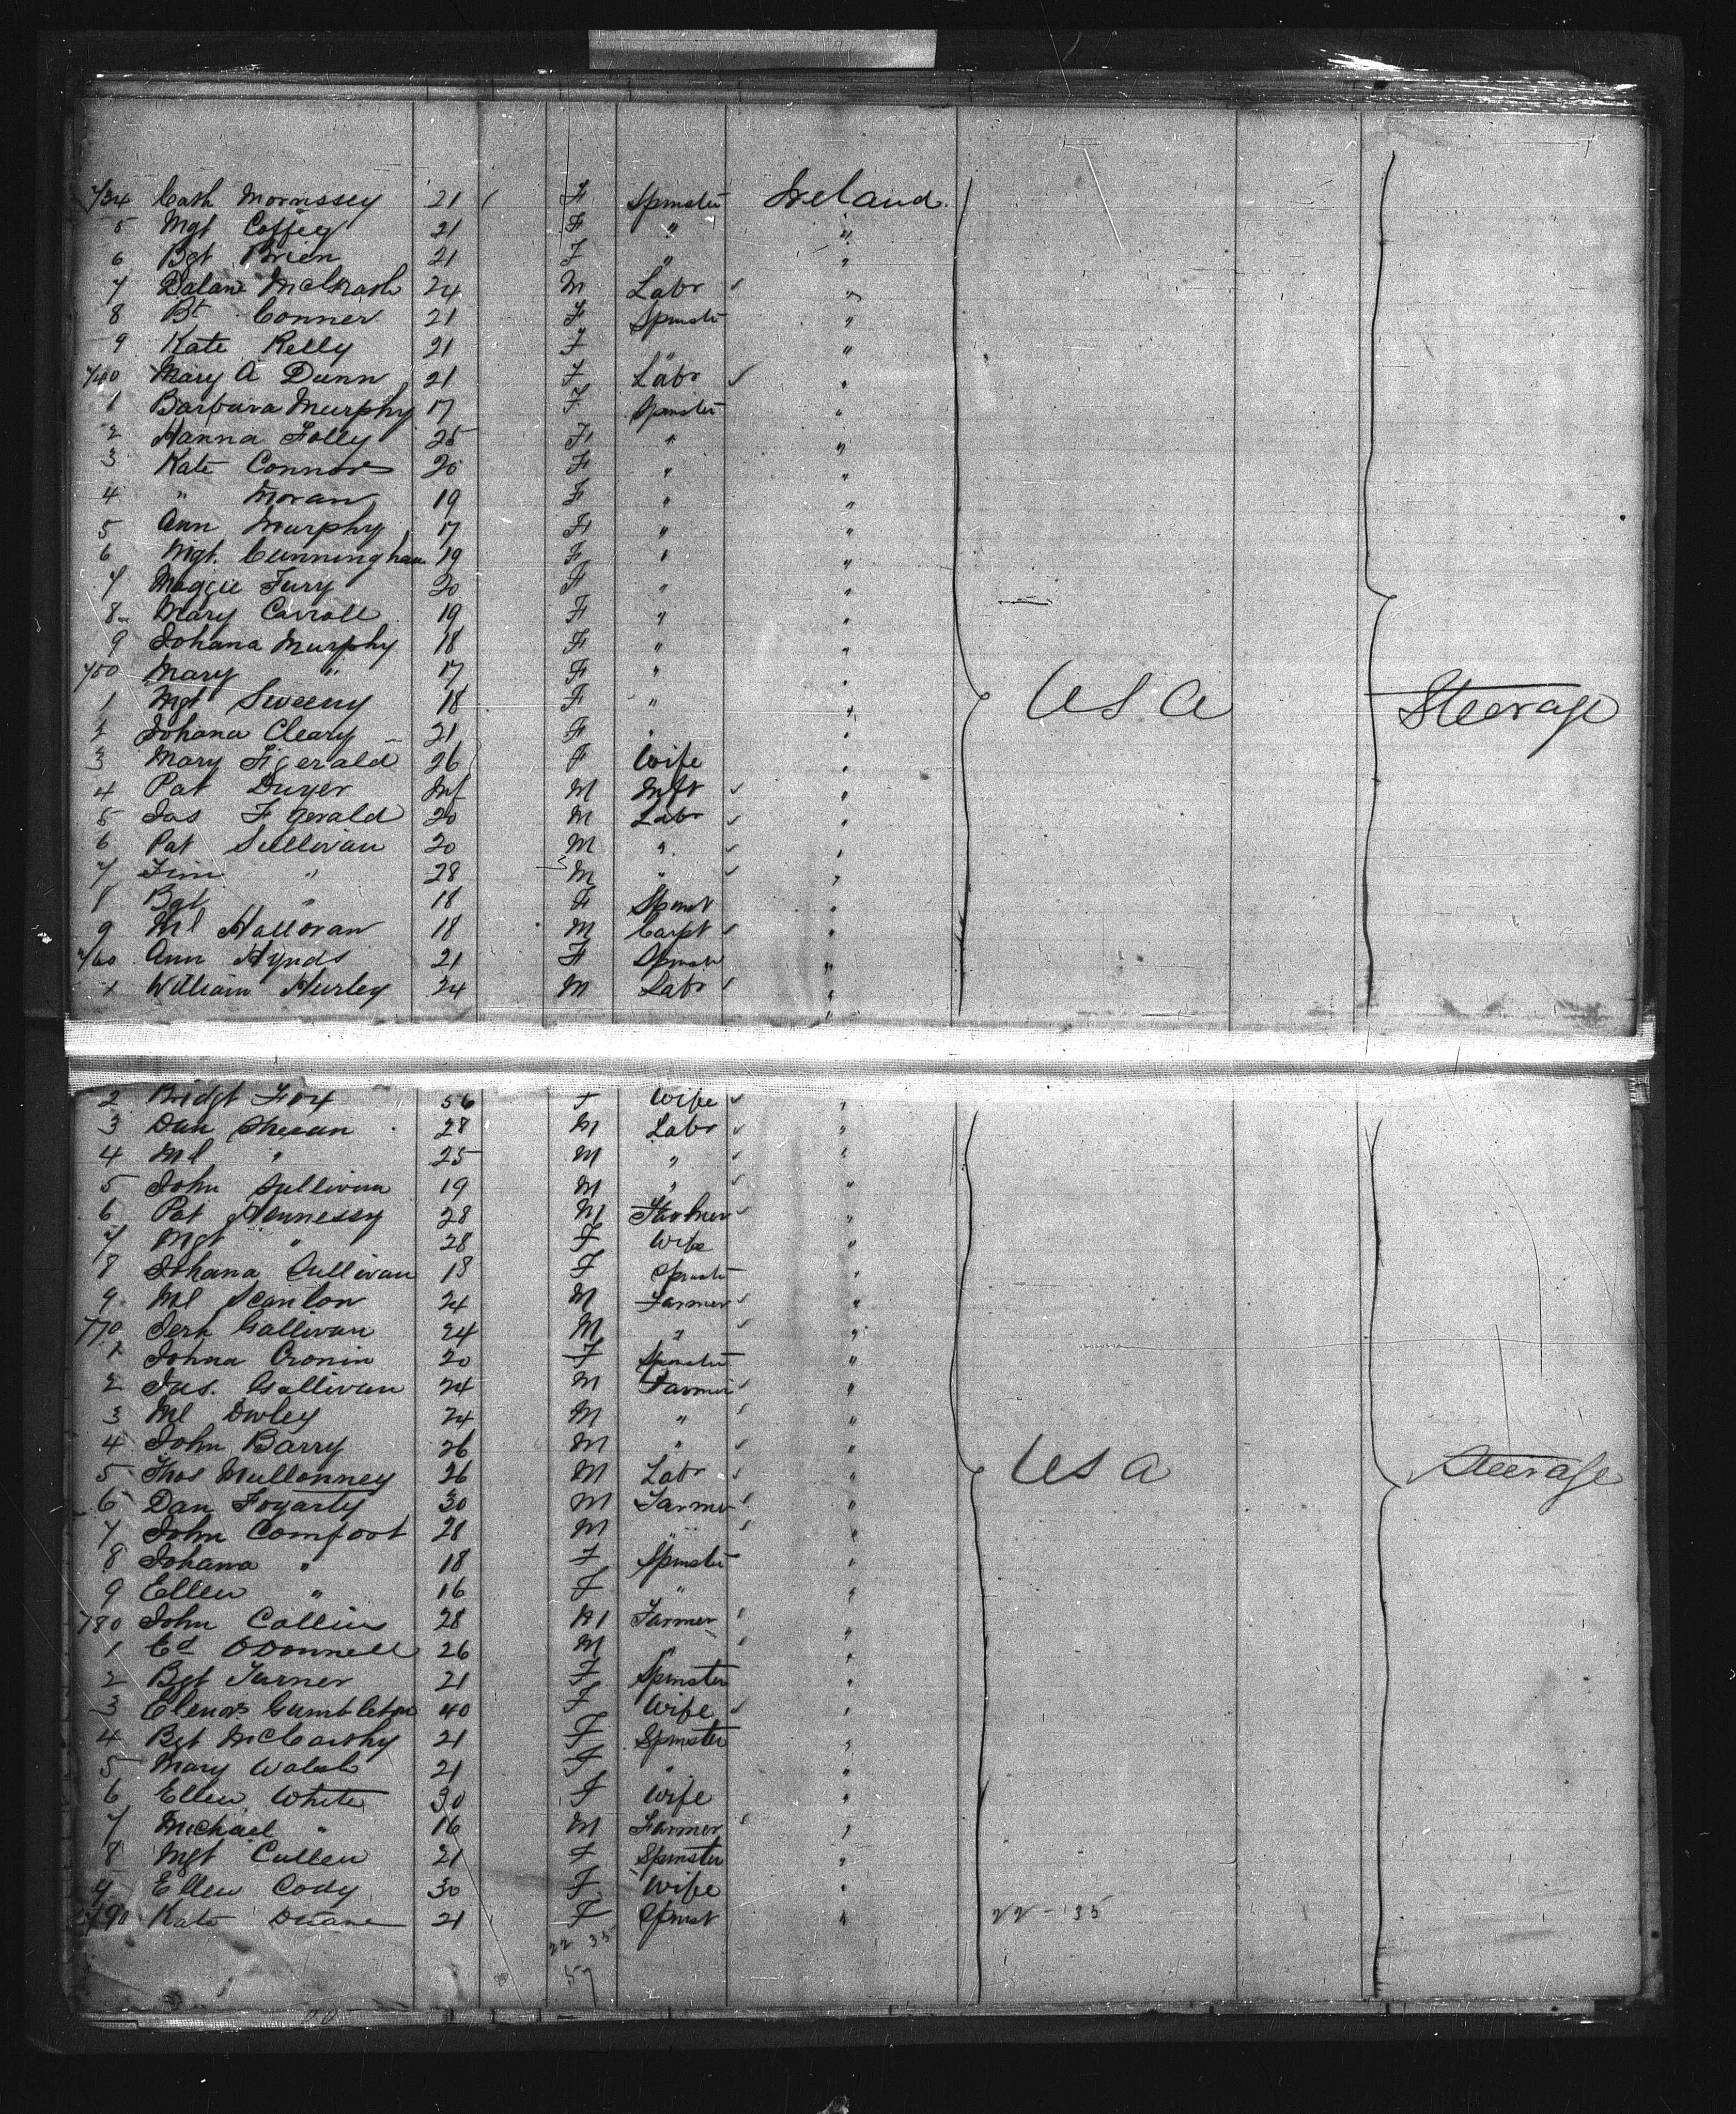 734 Cath Morrissey 21 F Spinster Ireland
5 Mgt Coffey 21 F " "
6 Bgt Brien 21 F " "
7 McGrath 24 M Labr "
8 Bt Conner 21 F Spinstr "
9 Kate Kelly 21 F " "
740 Mary A Dunn 21 F Labr "
1 Barbara Murphy 17 F Spinster "
2 Hanna Folly 25 F " "
3 Kate Connors 20 F " "
4 " Moran 19 F " "
5 Ann Murphy 17 F " "
6 Mgt. Cunningham 19 F " "
7 Maggie Fury 20 F " "
8 Mary Carroll 19 F " "
9 Johana Murphy 18 F " "
750 Mary " 17 F " "
1 Mgt Sweeny 18 F " " USA Steerage
2 Johana Cleary 21 F " "
3 Mary Fgerald 26 F Wife "
4 Pat Dwyer Inf M Inft "
5 Jas Fgerald 20 M Labr "
6 Pat Sullivan 20 M " "
7 Tim " 28 M " "
8 Bgt " 18 F Spinst "
9 Ml Halloran 18 M Carpt "
760 Ann Hynds 21 F Spinstr "
1 William Hurley 24 M Labr "
2 Bridgt Fox 56 F Wife "
3 Dan Sheean 28 M Labr "
4 Ml " 25 M " "
5 John Sullivan 19 M " "
6 Pat Hennessy 28 M Farmer "
7 Mgt " 28 F Wife "
8 Johana Sullivan 18 F Spinstr "
9 Ml Scanlon 24 M Farmer "
770 Jerh Gallivan 24 M " "
1 Johna Cronin 20 F Spinster "
2 Jas. Gallivan 24 M Farmer "
3 Ml Dooley 24 M " "
4 John Barry 26 M " "
5 Thos Mullonney 26 M Labr " USA Steerage
6 Dan Fogarty 30 M Farmer "
7 John Comfoot 28 M " "
8 Johana " 18 F Spinster "
9 Ellen " 16 F " "
780 John Collins 28 M Farmer "
1 Ed ODonnell 26 M " "
2 Bgt Turner 21 F Spinster "
3 Elenor Gumbleton 40 F Wife "
4 Bgt McCarthy 21 F Spinster "
5 Mary Walsh 21 F " "
6 Ellen White 30 F Wife "
7 Michael " 16 M Farmer "
8 Mgt Cullen 21 F Spinster "
9 Ellen Cody 30 F Wife "
790 Kate Duane 21 F Spinst " 22-35
22 35
57